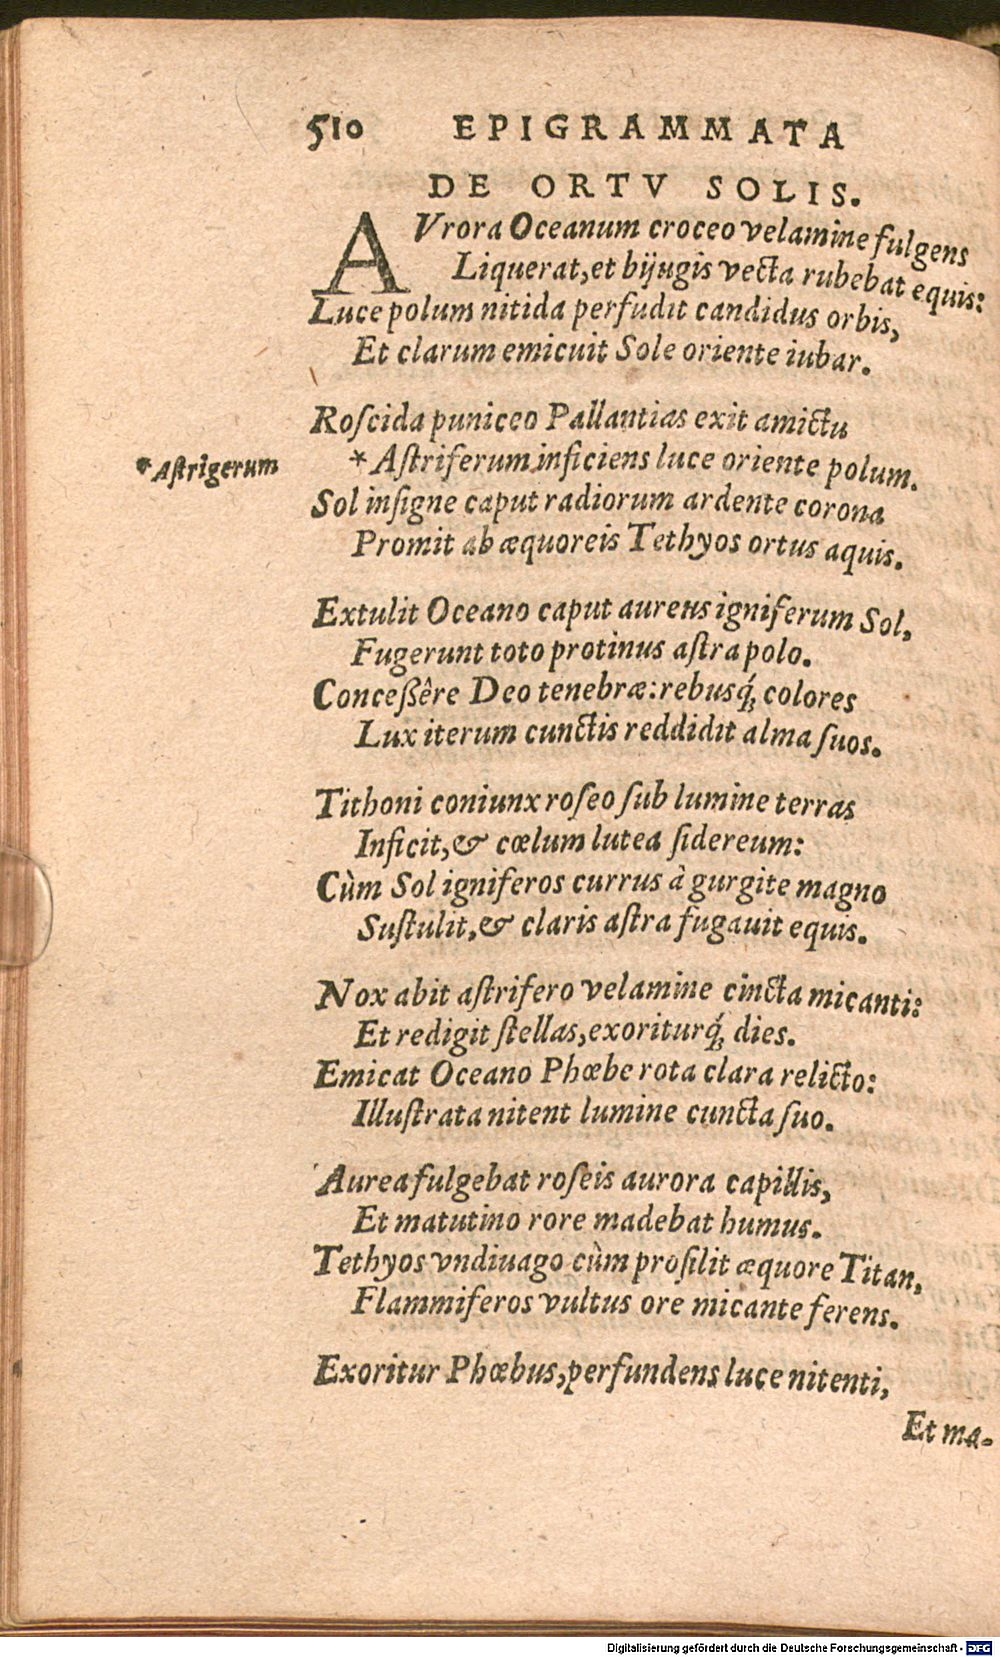 510 EPIGRAMMATA
DE ORTV SOLIS.
AVrora Oceanum croceo velamine fulgens
Liquerat, et bijugis vecta rubebat equis:
Luce polum nitida perfudit candidus orbis,
Et clarum emicuit Sole oriente iubar.
Roſcida puniceo Pallantias exit amictu
*Aſtrigerum
*Aſtriferum inficiens luce oriente polum.
Sol inſigne caput radiorum ardente corona
Promit ab æquoreis Tethyos ortus aquis.
Extulit Oceano caput aureus igniferum Sol,
Fugerunt toto protinus aſtra polo.
Conceßêre Deo tenebræ: rebusq́; colores
Lux iterum cunctis reddidit alma ſuos.
Tithoni coniunx roſeo ſub lumine terras
Inficit, & cœlum lutea ſidereum:
Cùm Sol igniferos currus à gurgite magno
Suſtulit, & claris aſtra fugauit equis.
Nox abit aſtrifero velamine cincta micanti:
Et redigit ſtellas, exoriturq́; dies.
Emicat Oceano Phœbe rota clara relicto:
Illuſtrata nitent lumine cuncta ſuo.
Aurea fulgebat roſeis aurora capillis,
Et matutino rore madebat humus.
Tethyos vndiuago cùm proſilit æquore Titan,
Flammiferos vultus ore micante ferens.
Exoritur Phœbus, perfundens luce nitenti,
Et ma-
Digitalisierung gefördert durch die Deutsche Forschungsgemeinschaft - DFG